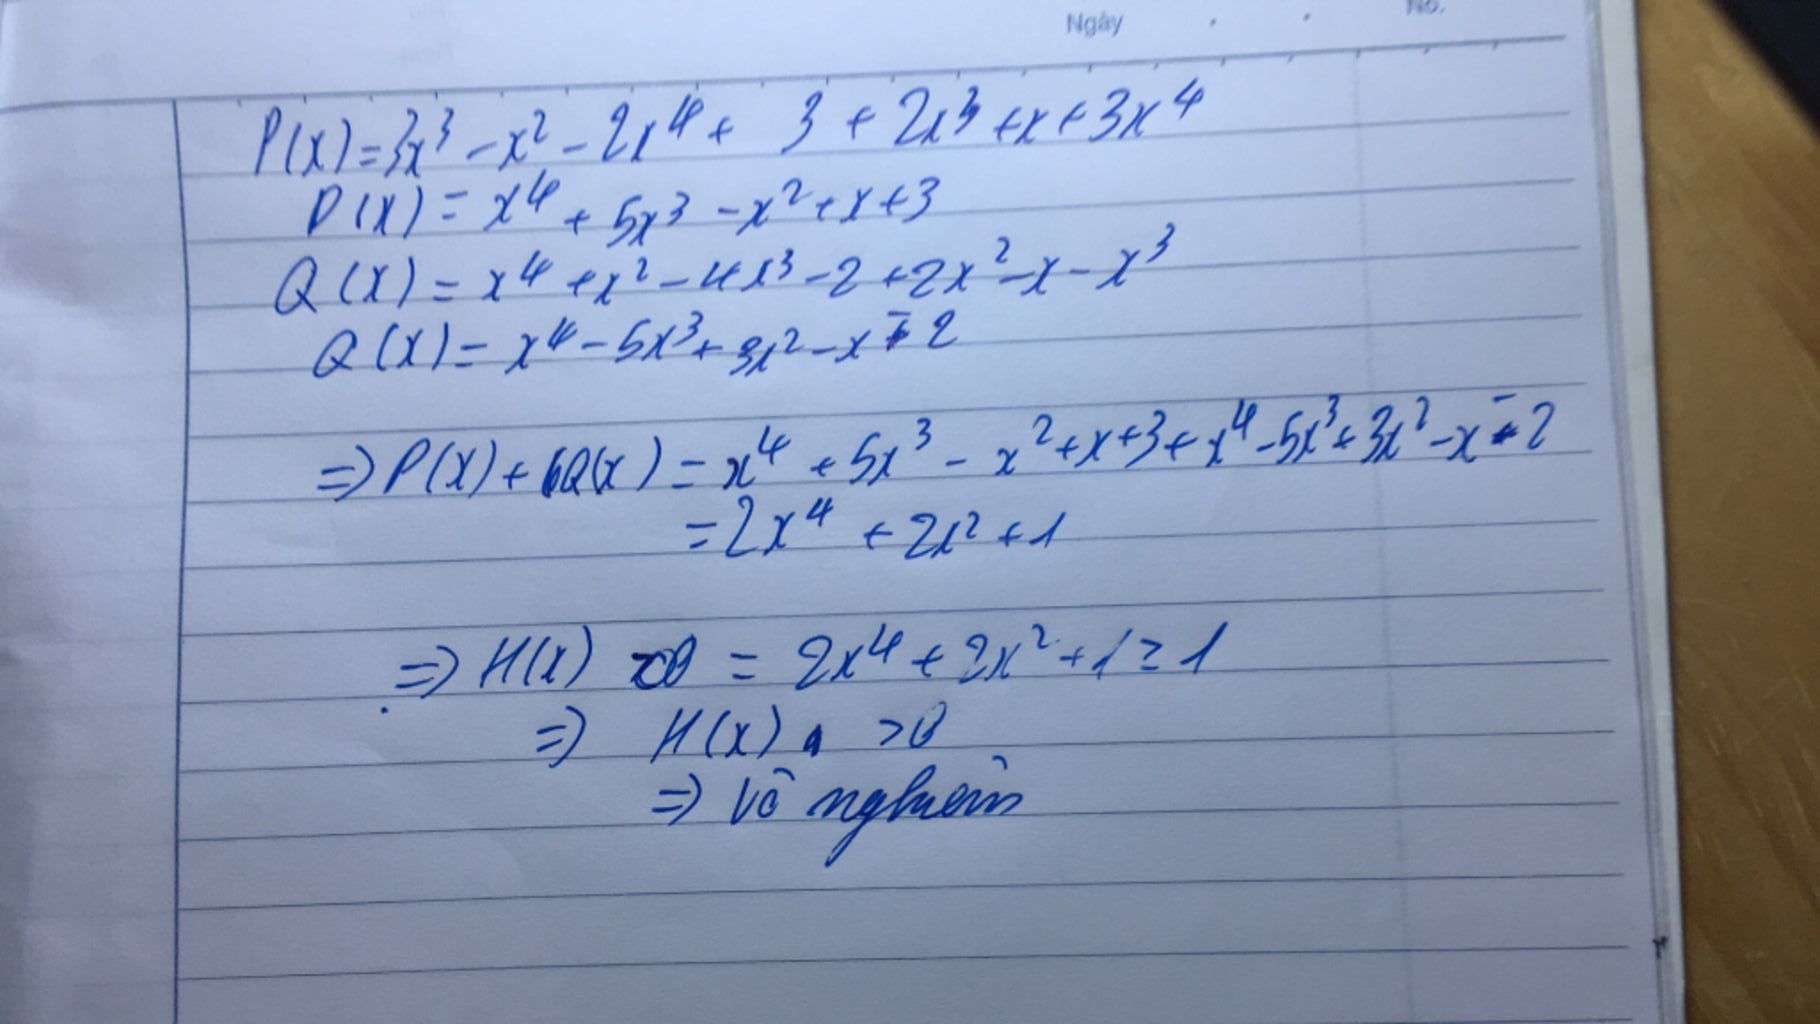 Ngày No.
P(x)=3x³ - x² - 2x⁴ + 3 + 2x³ + x + 3x⁴
P(x) = x⁴ + 5x³ - x² + x + 3
Q(x) = x⁴ + x² - 4x³ - 2 + 2x² - x - x³
Q(x) = x⁴ - 5x³ + 3x² - x - 2
=> P(x) + Q(x) = x⁴ + 5x³ - x² + x + 3 + x⁴ - 5x³ + 3x² - x - 2
= 2x⁴ + 2x² + 1
=> H(x) = 2x⁴ + 2x² + 1 ≥ 1
=> H(x) > 0
=> Vô nghiệm